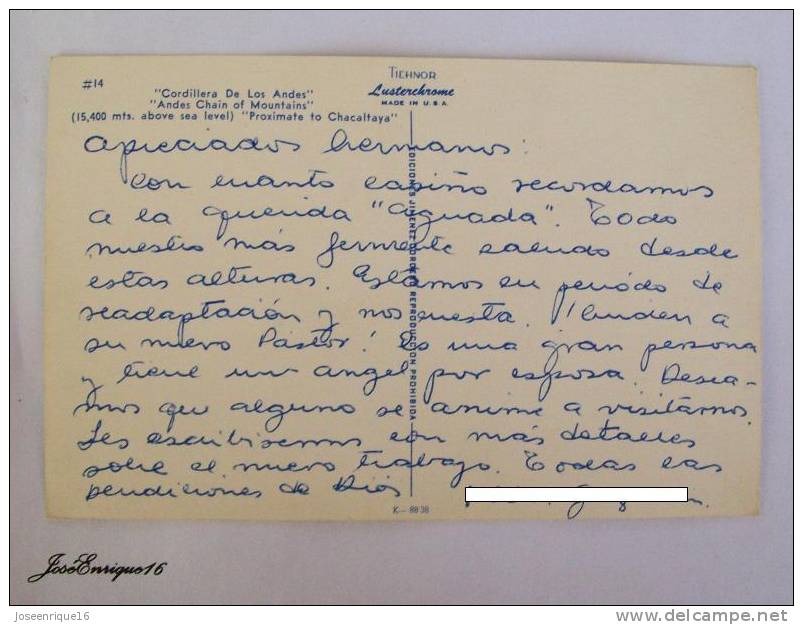 #14
"Cordillera De Los Andes"
"Andes Chain of Mountains"
(15,400 mts. above sea level) "Proximate to Chacaltaya"
TICHNOR
Lusterchrome
MADE IN U.S.A.
Apreciados hermanos:
Con cuanto cariño recordamos
a la querida "Aguada". Todo
nuestro más ferviente saludo desde
estas alturas. Estamos en periódo de
readaptación y nos cuesta. ¡Cuiden a
su nuevo Pastor! Es una gran persona
y tiene un angel por esposa. Desea-
mos que alguno se anime a visitarnos.
Les escribiremos con más detalles
sobre el nuevo trabajo. Todas las
bendiciones de Dios
EDICIONES JIMENEZ REPRODUCCION PROHIBIDA
K-8838
JoséEnrique16
Joseenrique16
delcampe.net